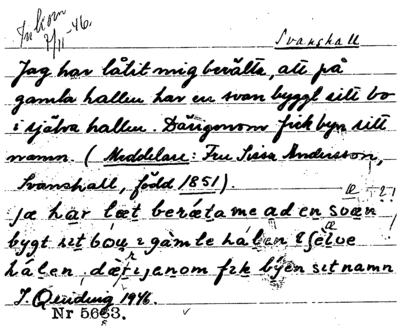 Inkom
2/11-46.
Svanshall
Jag har låtit mig berätta, att på
gamla hallen har en svan byggt sitt bo
i själva hallen. Därigenom fick byn sitt
namn. (Meddelare: Fru Sissa Andersson,
Svanshall, född 1851).
ja har læt berætame ad en
bygt sıt ı gamle hálen
hálen fık býen sıt namn
1946.
Nr 5663.